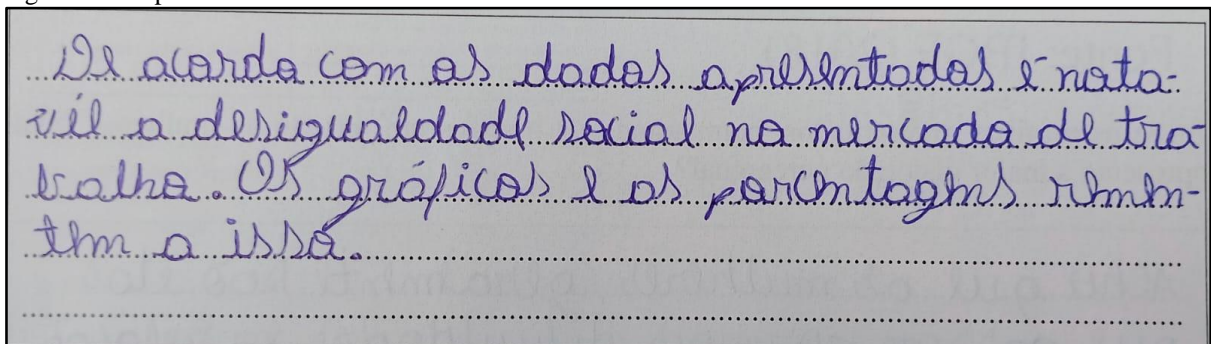 De acordo com os dados apresentados é nota-
vél a desigualdade social no mercado de tra-
balho. Os gráficos e as porcentagens rementem a isso.